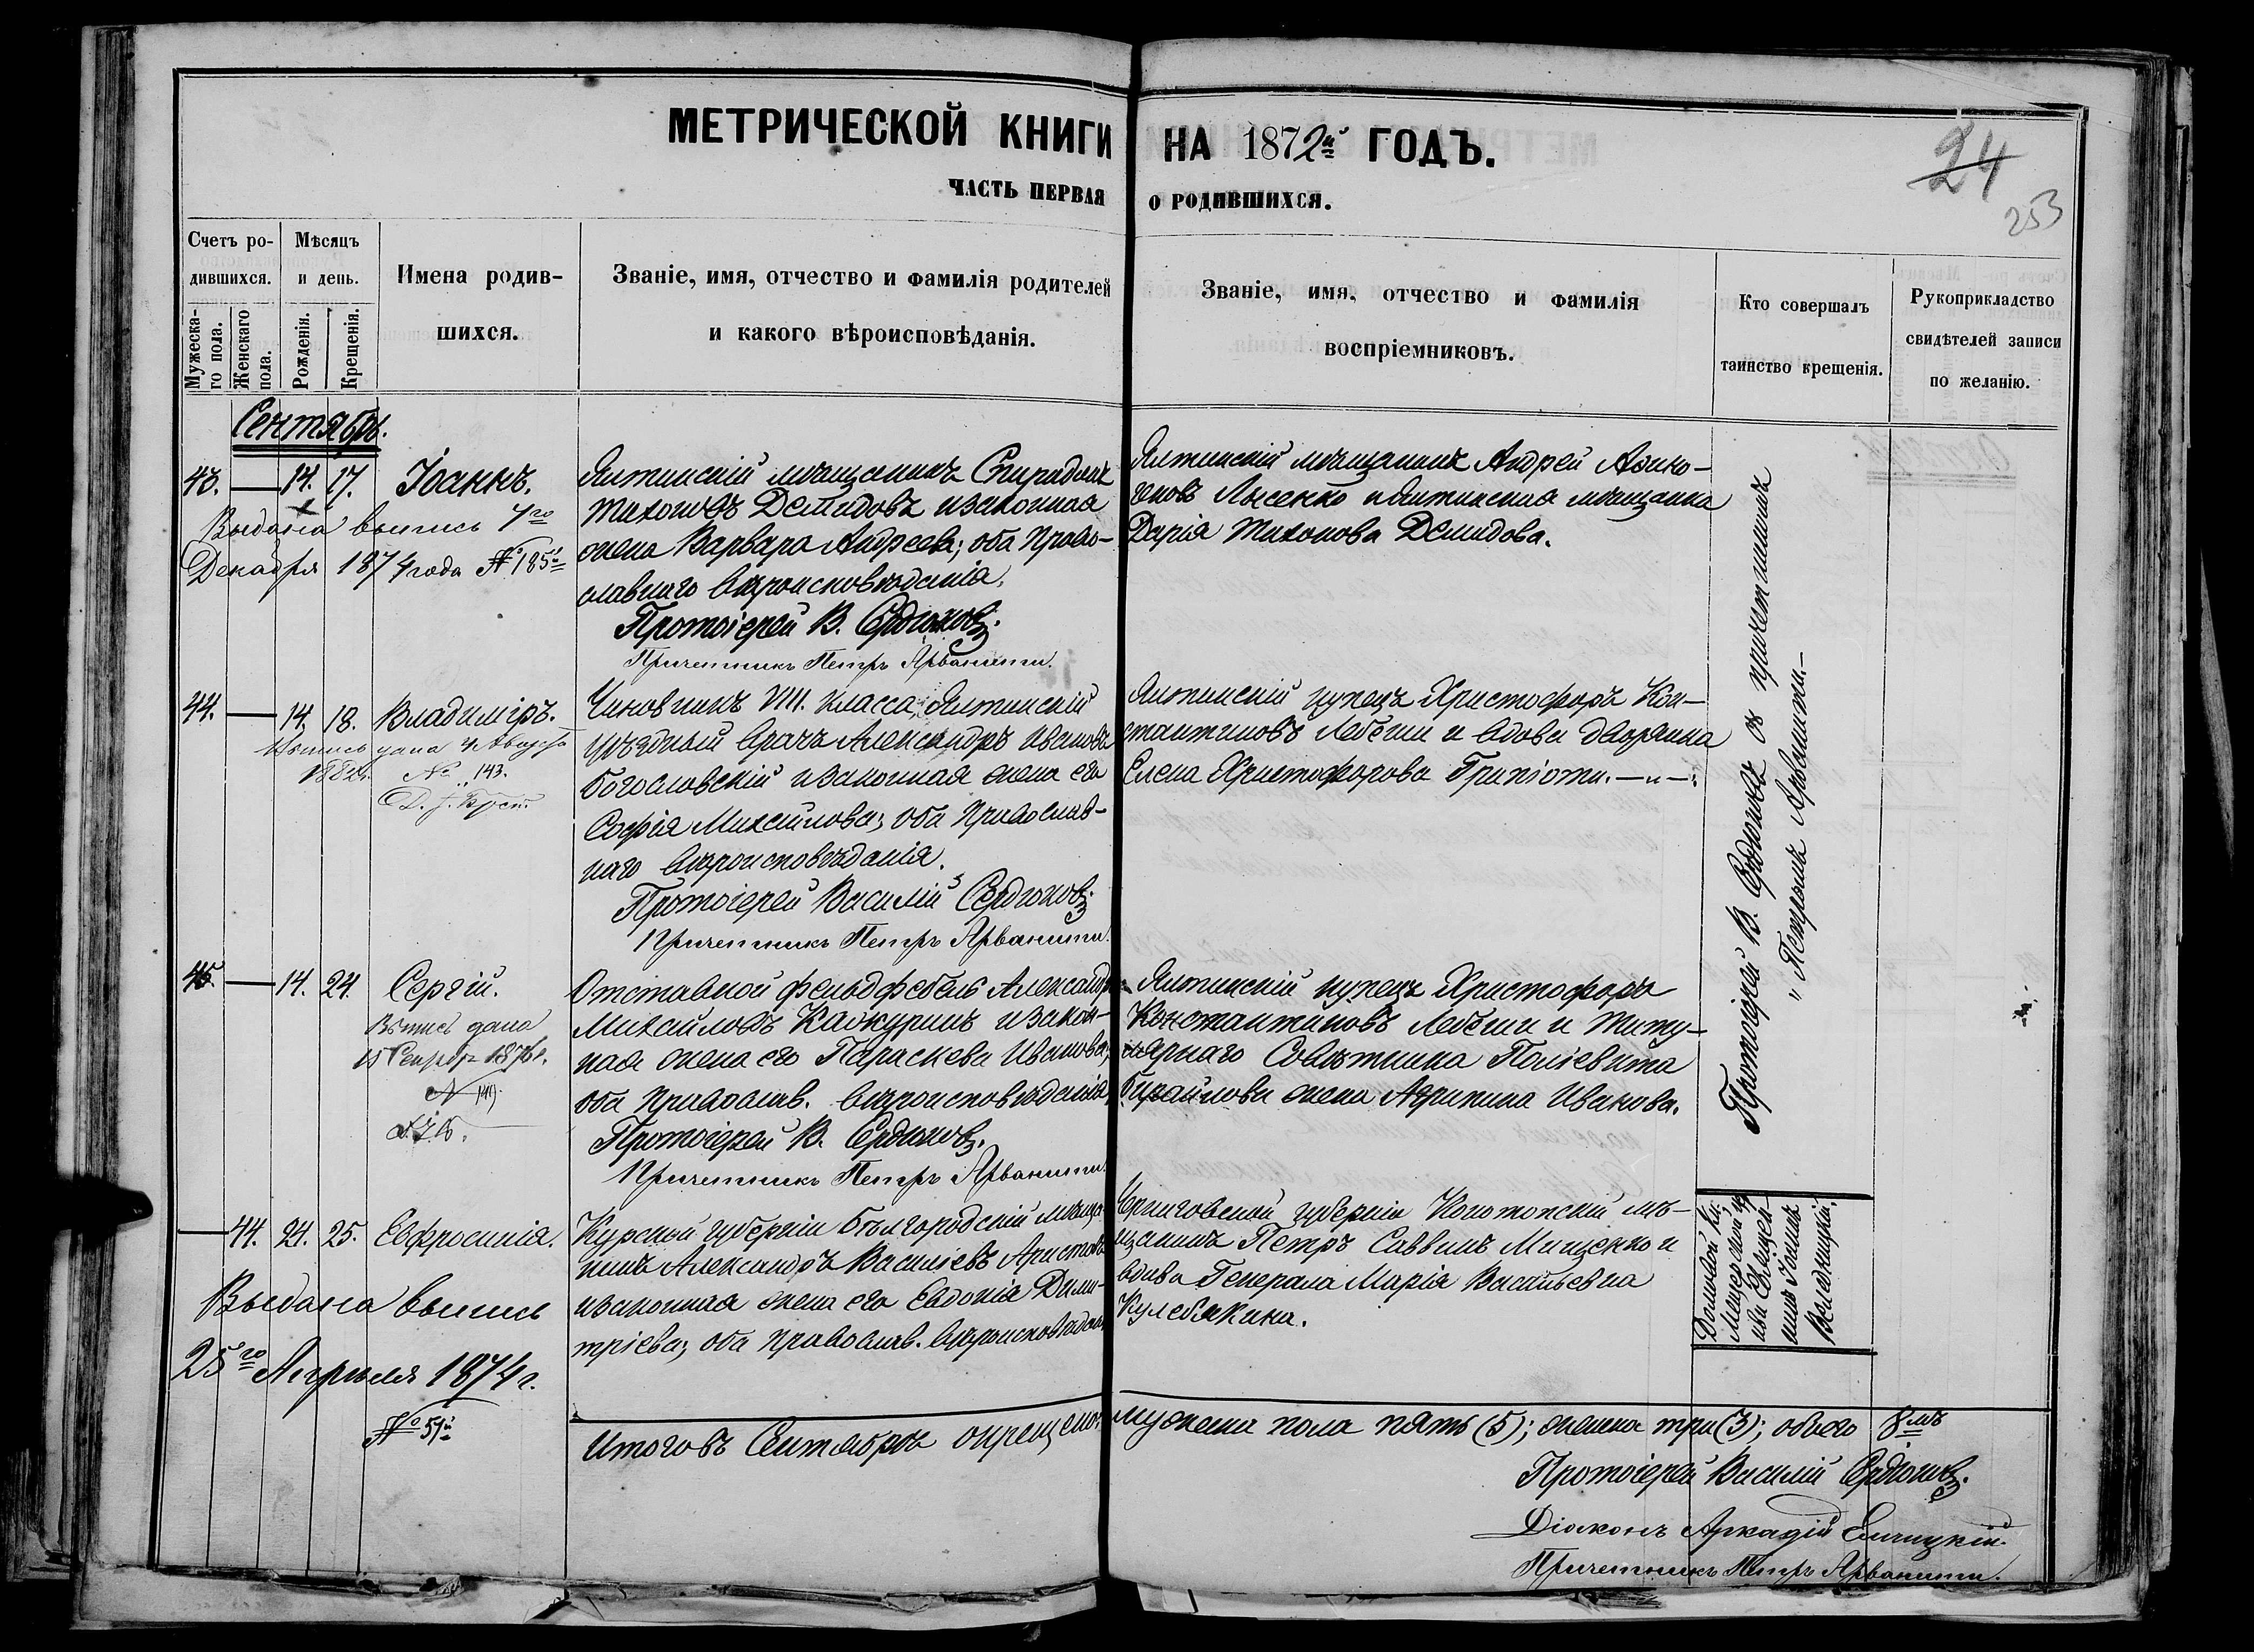 МЕТРИЧЕСКОЙ КНИГИ НА 1872й ГОДЪ.
24
253
ЧАСТЬ ПЕРВАЯ О РОДИВШИХСЯ.
Счетъ ро-
дившихся.
Мужеска-
го пола.
Женскаго
пола.
Мѣсяцъ
и день.
Рожденія.
Крещенія.
Имена родив-
шихся.
Званіе, имя, отчество и фамилія родителей
и какого вѣроисповѣданія.
Званіе, имя, отчество и фамилія
воспріемниковъ.
Кто совершалъ
таинство крещенія.
Рукоприкладство
свидѣтелей записи
по желанію.
Сентябрь.
43. — 14. 17. Іоаннъ.
Выдана выпись 4го
Декабря 1874 года № 185й
Ялтинскій мѣщанинъ Спиридонъ
Тихоновъ Демидовъ и законная
жена Варвара Андреева; оба право-
славнаго вѣроисповѣданія.
Протоіерей В. Сердюковъ.
Причетникъ Петръ Арванити.
Ялтинскій мѣщанинъ Андрей Аѳино-
геновъ Лысенко и Ялтинская мѣщанка
Дарія Тихонова Демидова.
44. — 14. 18. Владиміръ.
Выпись дана 4 Августа
1882г. № 143.
Чиновникъ VIII. класса, Ялтинскій
уѣздный врачъ Александръ Ивановъ
Богословскій и законная жена его
Софія Михайлова; оба православ-
наго вѣроисповѣданія.
Протоіерей Василій Сердюковъ
Причетникъ Петръ Арванити.
Ялтинскій купецъ Христофоръ Кон-
стантиновъ Лебеши и вдова дворянка
Елена Христофорова Грипіоти. —"—
45. — 14. 24. Сергій.
Выпись дана
№ 149.
Отставной фельдфебель Александръ
Михайловъ Кавкуринъ и закон-
ная жена его Параскева Иванова;
оба православ. вѣроисповѣданія.
Протоіерей В. Сердюковъ.
Причетникъ Петръ Арванити.
Ялтинскій купецъ Христофоръ
Константиновъ Лебеши и титу-
лярнаго Совѣтника Поліевкта
жена Агрипина Иванова.
Протоіерей В. Сердюковъ съ причетникомъ
" Петромъ Арванити.—
— 44. 24. 25. Евфросинія.
Выдана выпись
25го Апрѣля 1874 г.
№ 51й
Курской губерніи Бѣлгородскій мѣща-
нинъ Александръ Васильевъ Аристовъ
и законная жена его Евдокія Дими-
тріева; оба православ. вѣроисповѣданія
Черниговской губерніи Конотопскій мѣ-
щанинъ Петръ Саввинъ Мищенко и
вдова Генерала Марія Васильевна
Кулебякина.
Итого въ Сентябрѣ окрещено: мужеска пола пять (5); женска три (3); обоего 8мь
Протоіерей Василій Сердюковъ.
Діаконъ Аркадій
Причетникъ Петръ Арванити.